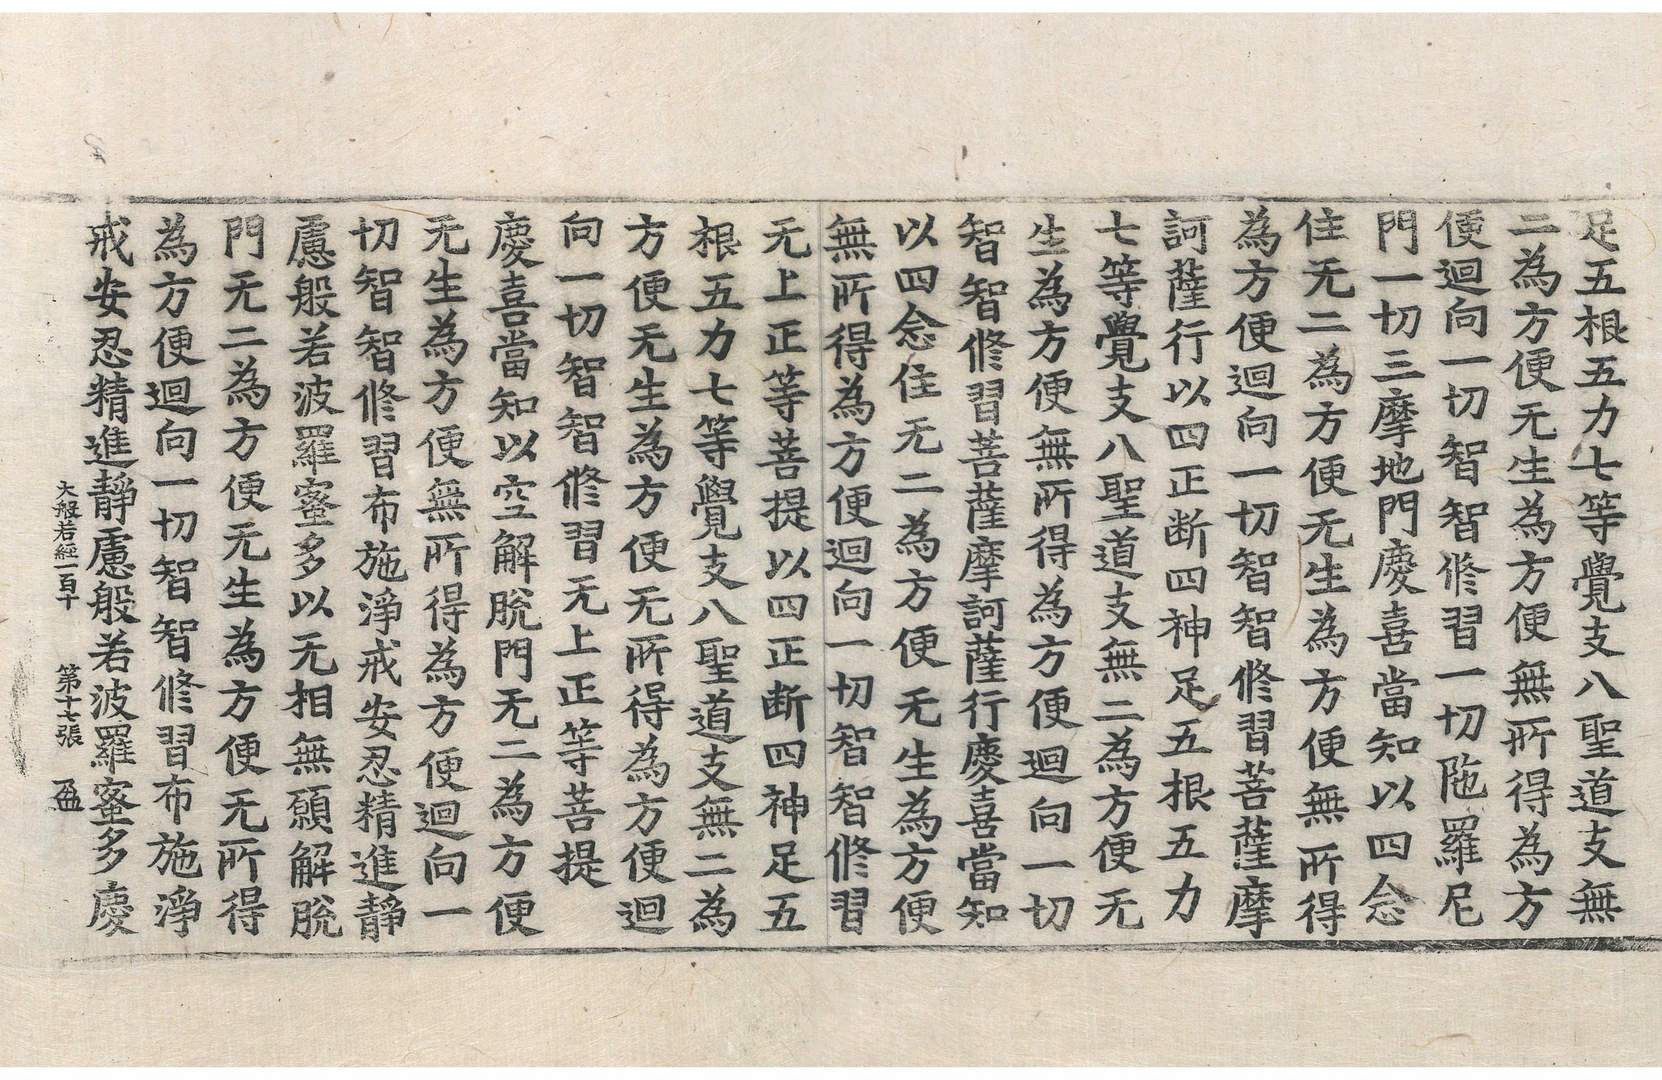 足五根五力七等覺支八聖道支無
二為方便无生為方便無所得為方
便迴向一切智智修習一切陁羅尼
門一切三摩地門慶喜當知以四念
住无二為方便无生為方便無所得
為方便迴向一切智智修習菩薩摩
訶薩行以四正断四神足五根五力
七等覺支八聖道支無二為方便无
生為方便無所得為方便迴向一切
智智修習菩薩摩訶薩行慶喜當知
以四念住无二為方便无生為方便
無所得為方便迴向一切智智修習
无上正等菩提以四正断四神足五
根五力七等覺支八聖道支無二為
方便无生為方便无所得為方便迴
向一切智智修習无上正等菩提
慶喜當知以空解脫門无二為方便
无生為方便無所得為方便迴向一
切智智修習布施淨戒安忍精進靜
慮般若波羅蜜多以无相無願解脫
門无二為方便无生為方便无所得
為方便迴向一切智智修習布施淨
戒安忍精進靜慮般若波羅蜜多慶
大般若經一百十 第十七張 盈